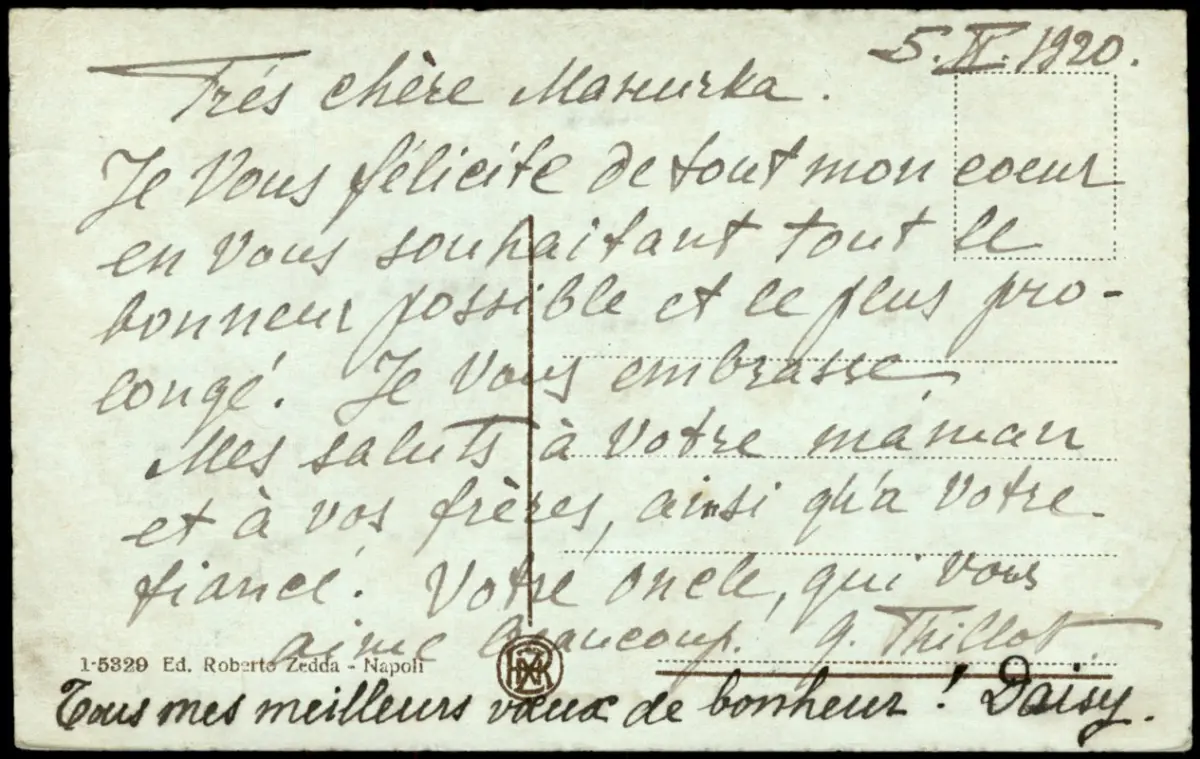 5. 1920.
Trés chère
Je Vous félicite de tout mon coeur
en Vous souhaitant tout le
bonneur possible et le plus pro-
longé. Je Vous embrasse
Mes saluts à Votre máman
et à vos frères, ainsi qu'a Votre
fiancé. Votre oncle, qui vous
aime beaucoup. G. Thillot.
1-5329 Ed. Roberto Zedda - Napoli
Tous mes meilleurs vœux de bonheur! Daisy.